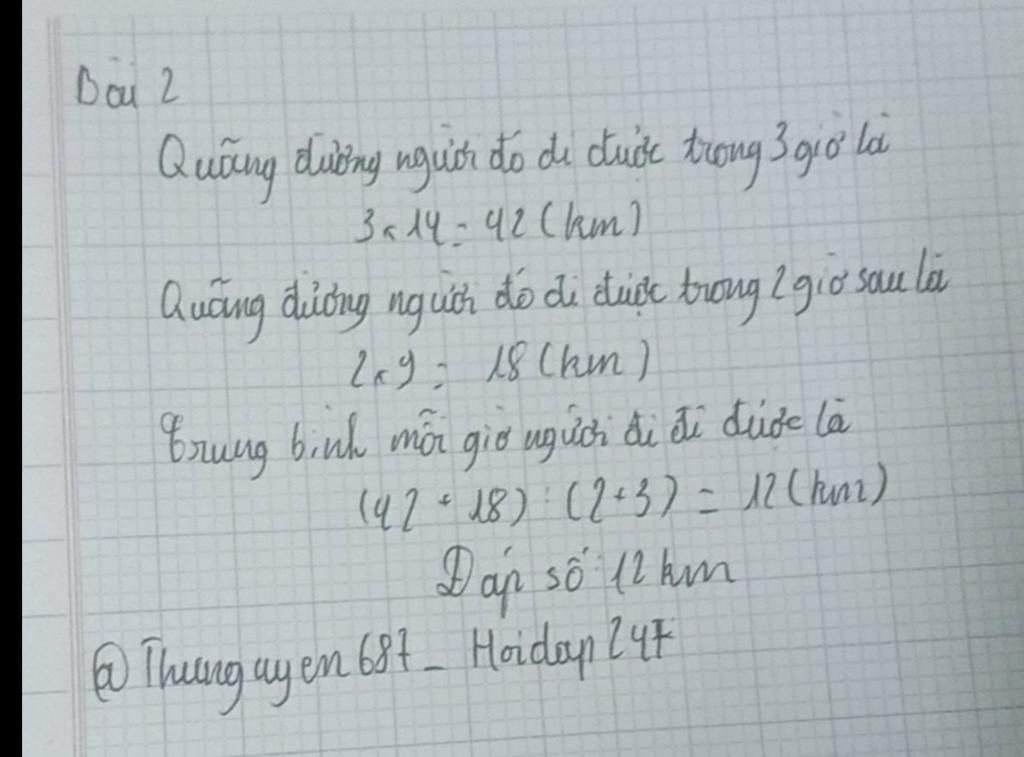 Bài 2
Quãng đường người đó đi được trong 3 giờ là
3 x 14 = 42 (km)
Quãng đường người đó đi được trong 2 giờ sau là
2 x 9 = 18 (km)
Trung bình mỗi giờ người đi đi được là
(42 + 18) : (2 + 3) = 12 (km)
Đáp số : 12 km
@ Thunguyen687 - Hoidap247